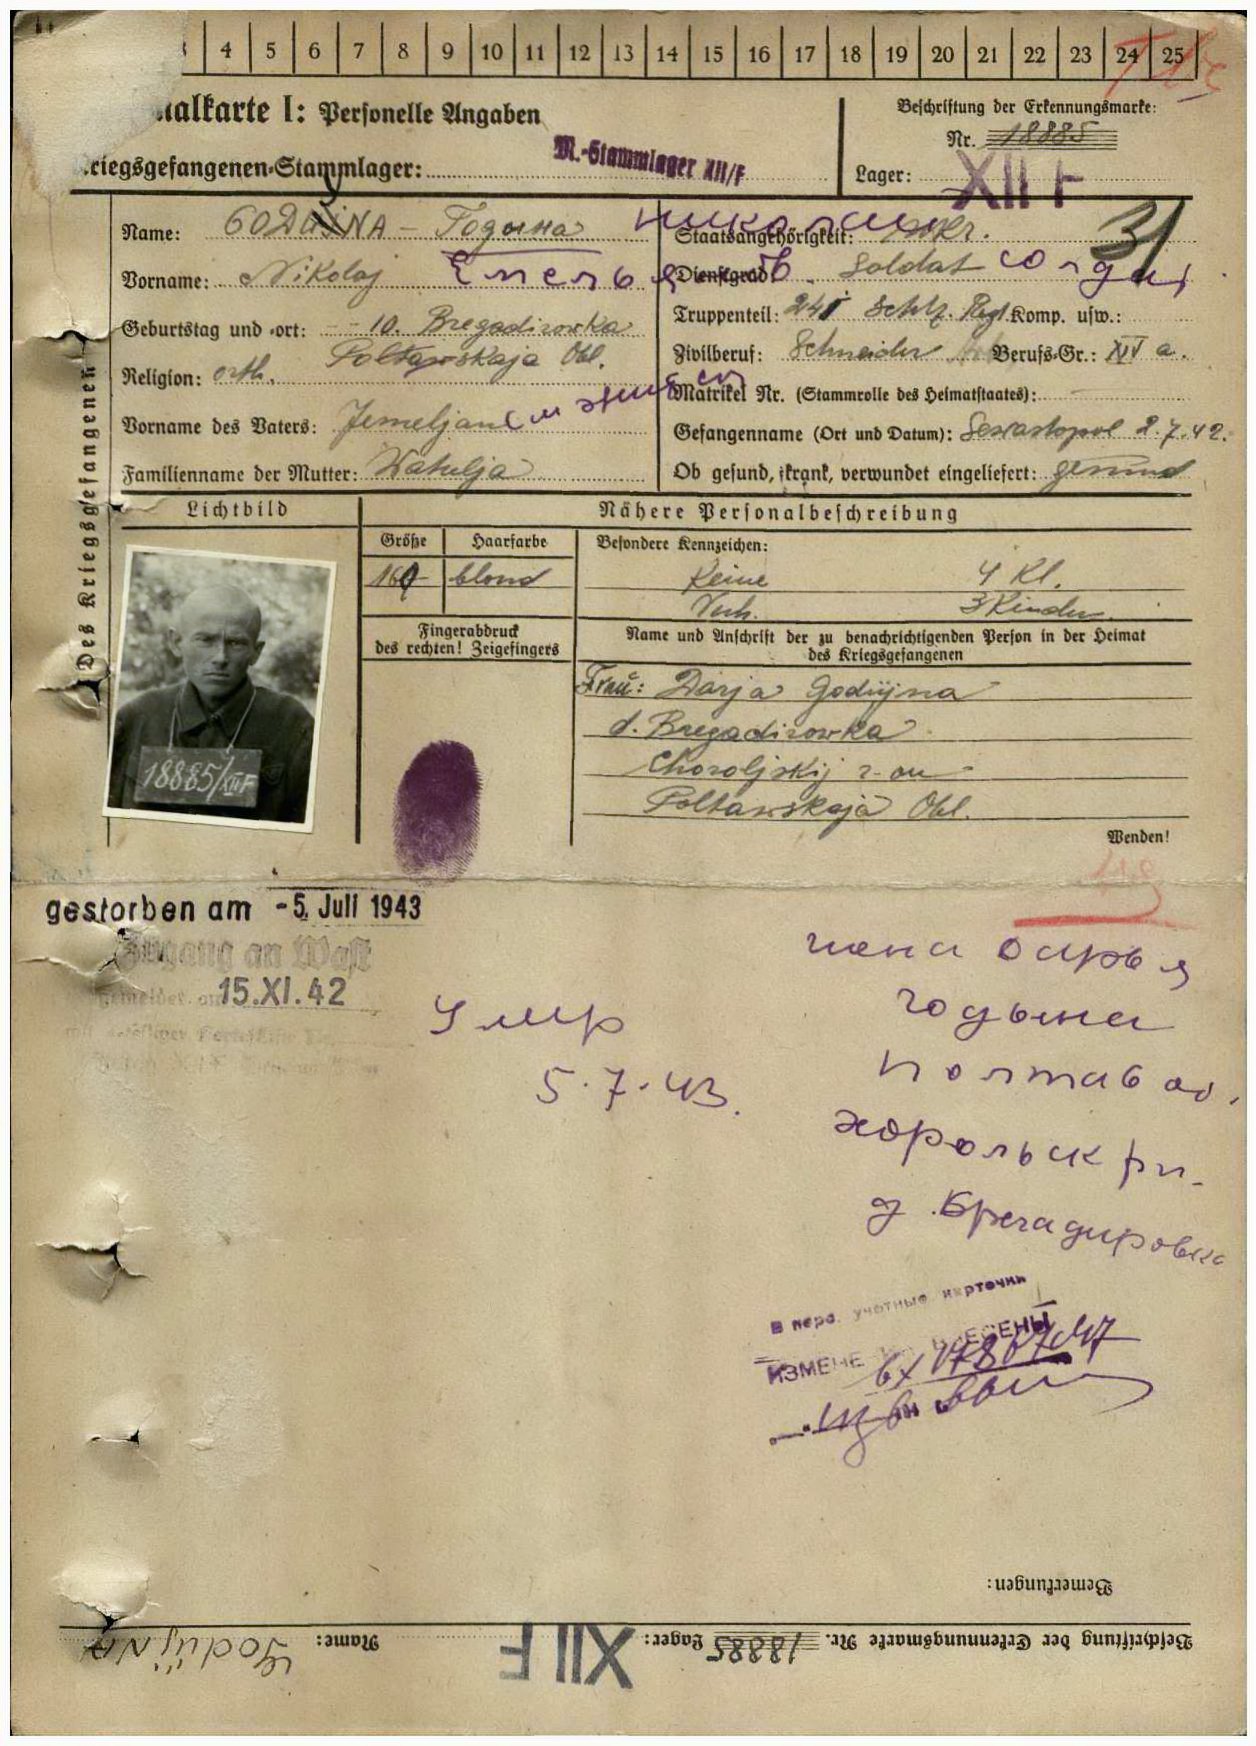 3 4 5 6 7 8 9 10 11 12 13 14 15 16 17 18 19 20 21 22 23 24 25
nalkarte I: Personelle Angaben
Beschriftung der Erkennungsmarke:
Nr. 18885
riegsgefangenen-Stammlager: M.-Stammlager XII/F
Lager: XII F
31
Des Kriegsgefangenen
Name: GODÜJNA - Годына
Николай
Vorname: Nikolaj
Емельянов.
Geburtstag und -ort: - - 10. Bregadirowka
Poltawskaja Obl.
Religion: orth.
Vorname des Vaters: Jemeljan
Familienname der Mutter: Watulja
Staatsangehörigkeit: Ukr.
Dienstgrad: Soldat солдат
Truppenteil: 241 Schtz. Regt Komp. usw.:
Zivilberuf: Schneider Berufs-Gr.: XIV a.
Matrikel Nr. (Stammrolle des Heimatstaates): -
Gefangenname (Ort und Datum): Sewastopol 2.7.42.
Ob gesund, krank, verwundet eingeliefert: gesund
Lichtbild
Nähere Personalbeschreibung
Größe Haarfarbe
169 blond
Besondere Kennzeichen:
Keine 4 Kl.
Verh. 3 Kinder
Fingerabdruck
des rechten! Zeigefingers
Name und Anschrift der zu benachrichtigenden Person in der Heimat
des Kriegsgefangenen
Frau: Darja Godüjna
d. Bregadirowka
Choroljskij r-on
Poltawskaja Obl.
18885/XII F
Wenden!
gestorben am -5. Juli 1943
Zugang an WaSt
gemeldet am 15.XI.42
Умер
5.7.43.
жена Дарья
Годына
Полтав об,
Хорольск рн.
д. Брегадировка
В перв. учетные карточки
ИЗМЕНЕНИЯ ВНЕСЕНЫ
Bemerkungen:
Beschriftung der Erkennungsmarke Nr. 18885 Lager: XII F Name: Godüjna